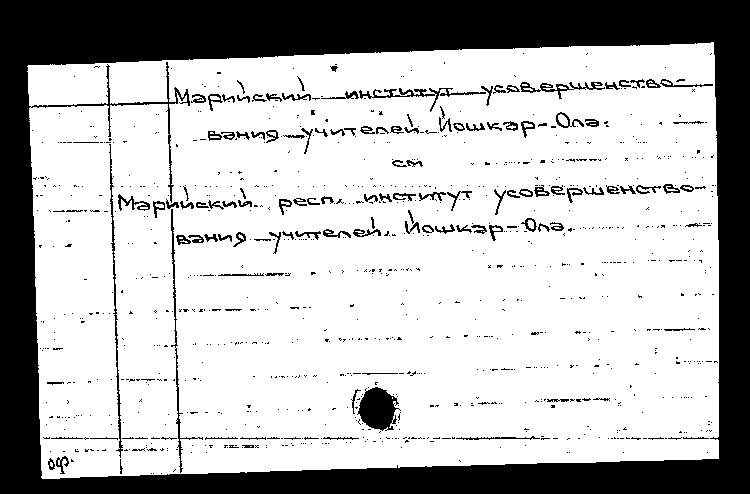 Марийский институт усовершенство-
вания учителей. Йошкар-Ола.
см
Марийский респ. институт усовершенство-
вания учителей. Йошкар-Ола.
оф.